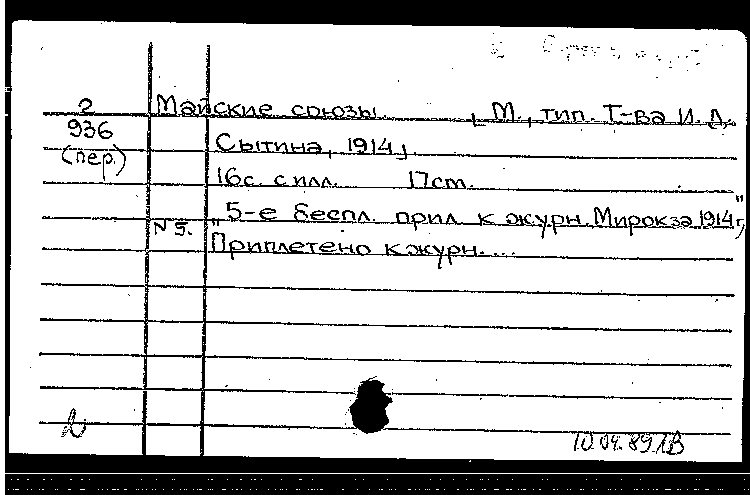 2 Майские союзы. [М., тип. Т-ва И.Д.
936 Сытина, 1914].
(пер.)
16с. с илл. 17см.
№5. "5-е беспл. прил. к журн. Мирок за 1914 г."
Приплетено к журн....
10.04.89